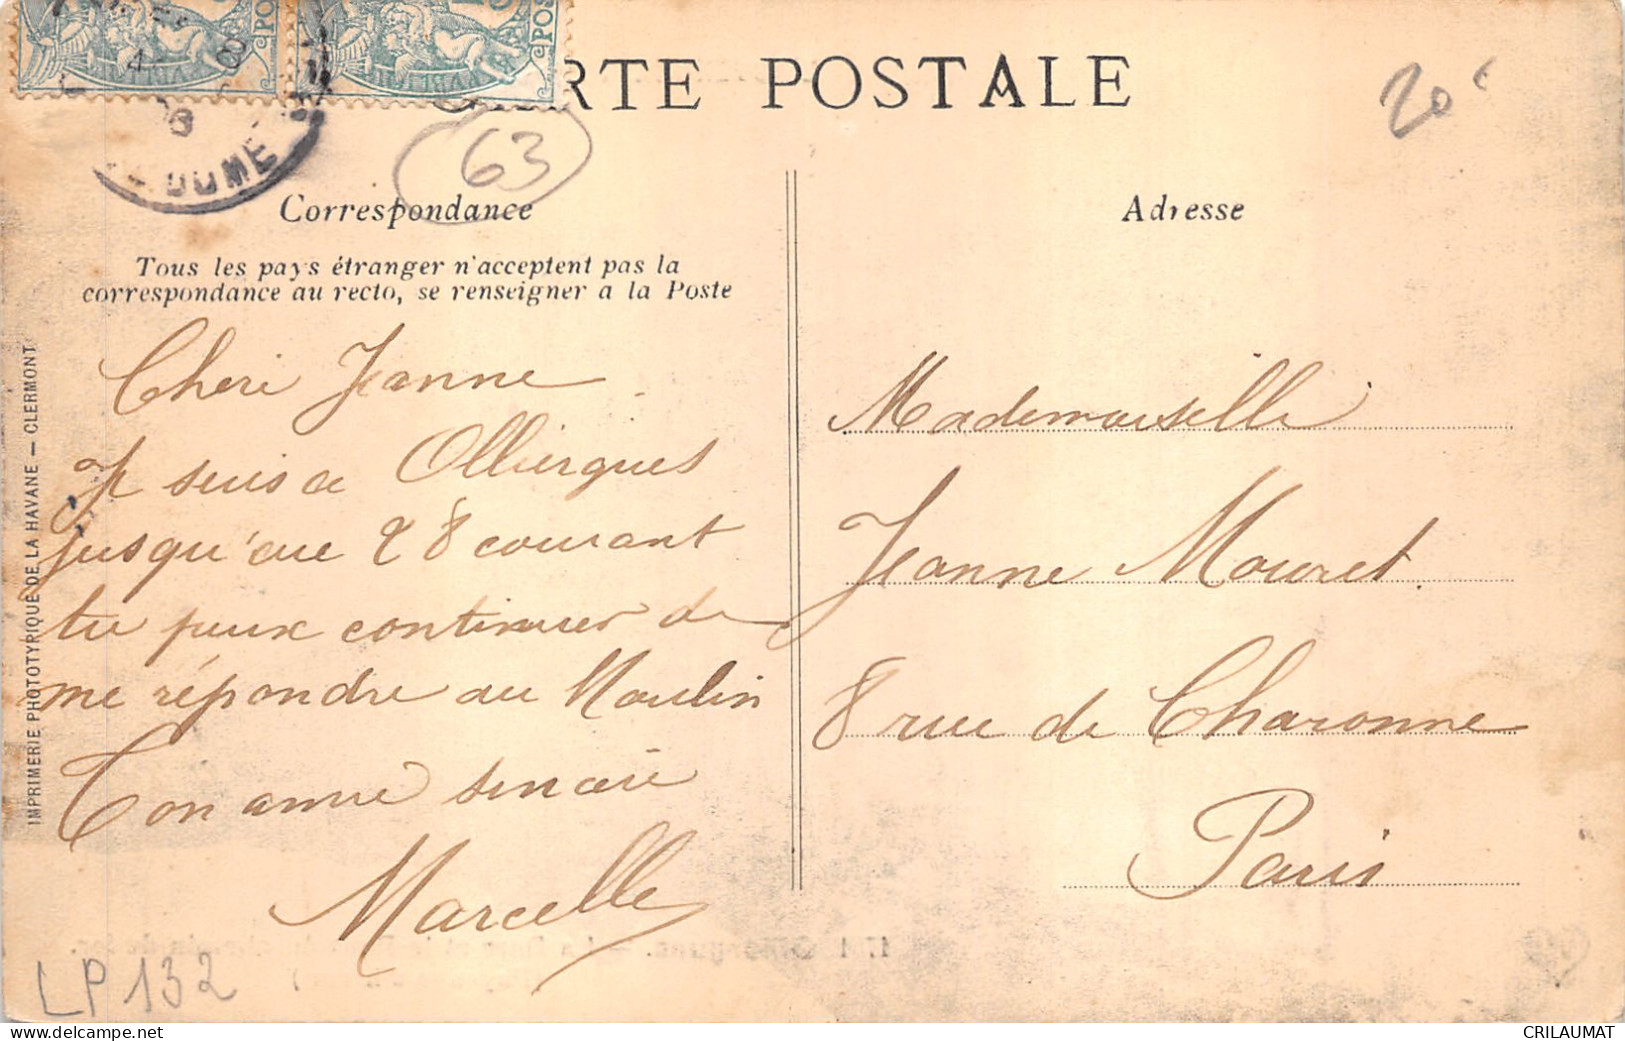 RTE POSTALE
20
63
DOME
Correspondance
Adresse
Tous les pays étranger n'acceptent pas la
correspondance au recto, se renseigner a la Poste
IMPRIMERIE PHOTOTYPIQUE DE LA HAVANE — CLERMONT
Cheri Jeanne
Je suis a Olliergues
jusqu'au 28 courant
tu peux continuer de
me répondre au Moulin
Ton amie sincère
Marcelle
Mademoiselle
Jeanne Mouret.
8 rue de Charonne
Paris
LP 132
CRILAUMAT
www.delcampe.net